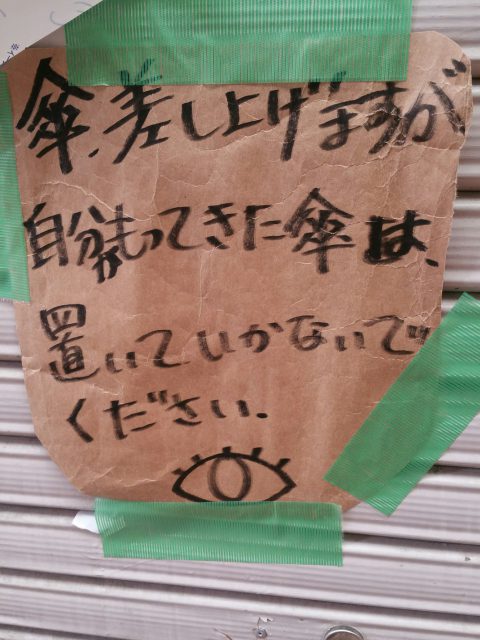 傘、差し上げますが
自分がもってきた傘は、
置いていかないで
ください.